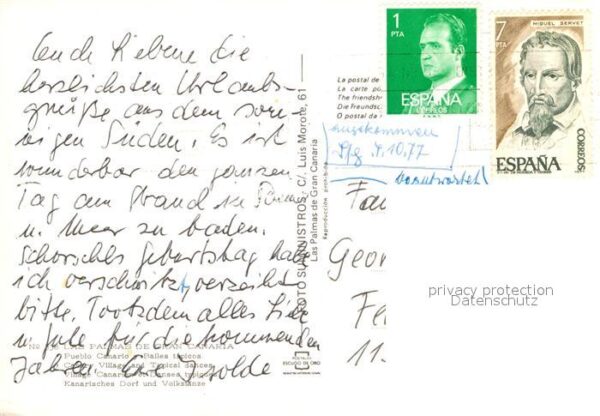 Euch Liebene die
herzlichsten Urlaubs-
grüße aus dem son-
nigen Süden. Es ist
wunderbar den ganzen
Tag am Strand in Sonne
u. Meer zu baden.
Schorsches Geburtstag habe
ich verschwitzt, verzeiht
bitte. Trotzdem alles Liebe
u. gute für die kommenden
Jahre. Eure Isolde
Nº LAS PALMAS DE GRAN CANARIA
Pueblo Canario Bailes típicos
Canary Village and Typical dances
Village Canarien Danses typiques
Kanarisches Dorf und Volkstänze
FOTO SUMINISTROS, C/. Luis Morote, 61
Las Palmas de Gran Canaria
Reproducción prohibida
POSTALES
ESCUDO DE ORO
La postal de
La carte po
The friendsh
Die Freundsc
O postal da
1
PTA
ESPAÑA
CORREOS
7
PTA
MIGUEL SERVET
CORREOS
ESPAÑA
angekommen
9.10.77
beantwortet
Fa
Georg
Fe
11.
privacy protection
Datenschutz